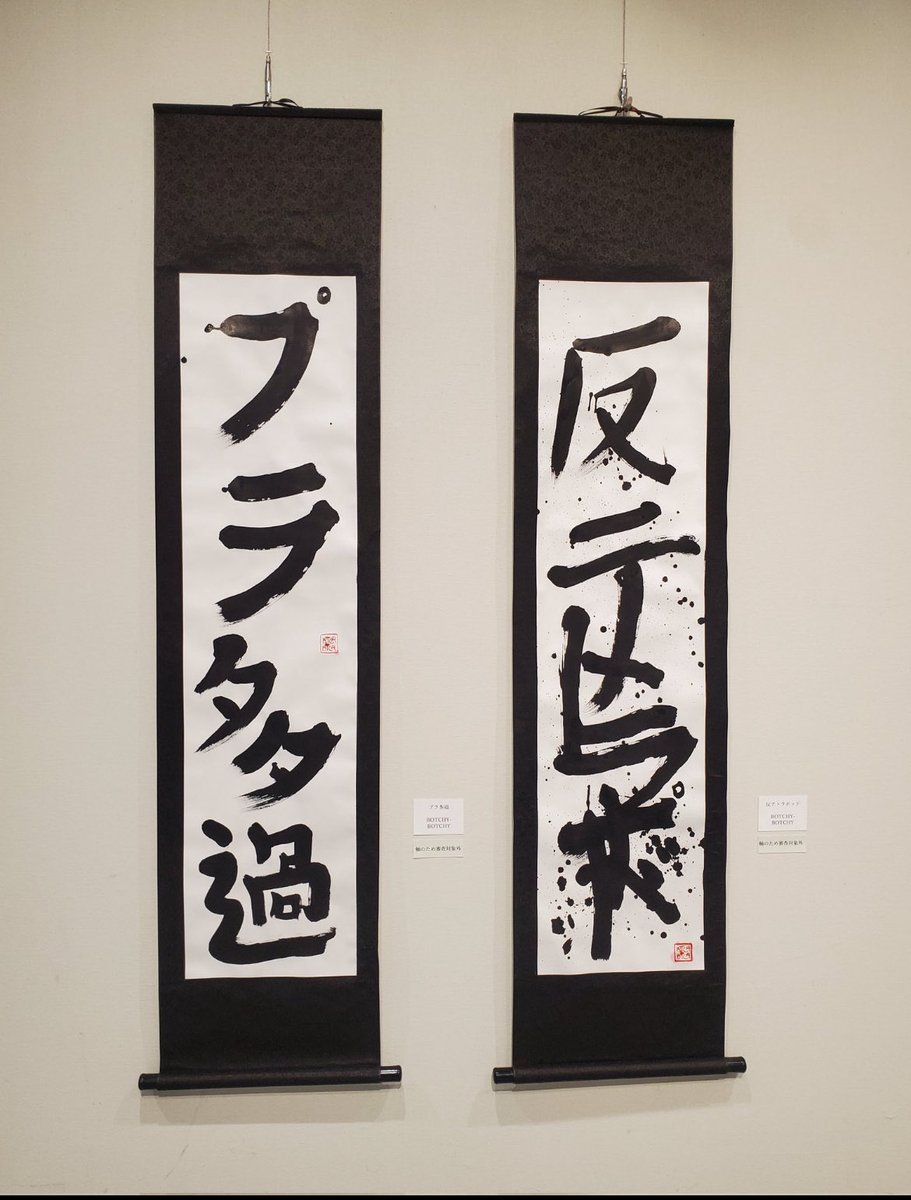 プラ多過
反テトラポッド
プラ多過
BOTCHY-
BOTCHY
軸のため審査対象外
反テトラポッド
BOTCHY-
BOTCHY
軸のため審査対象外